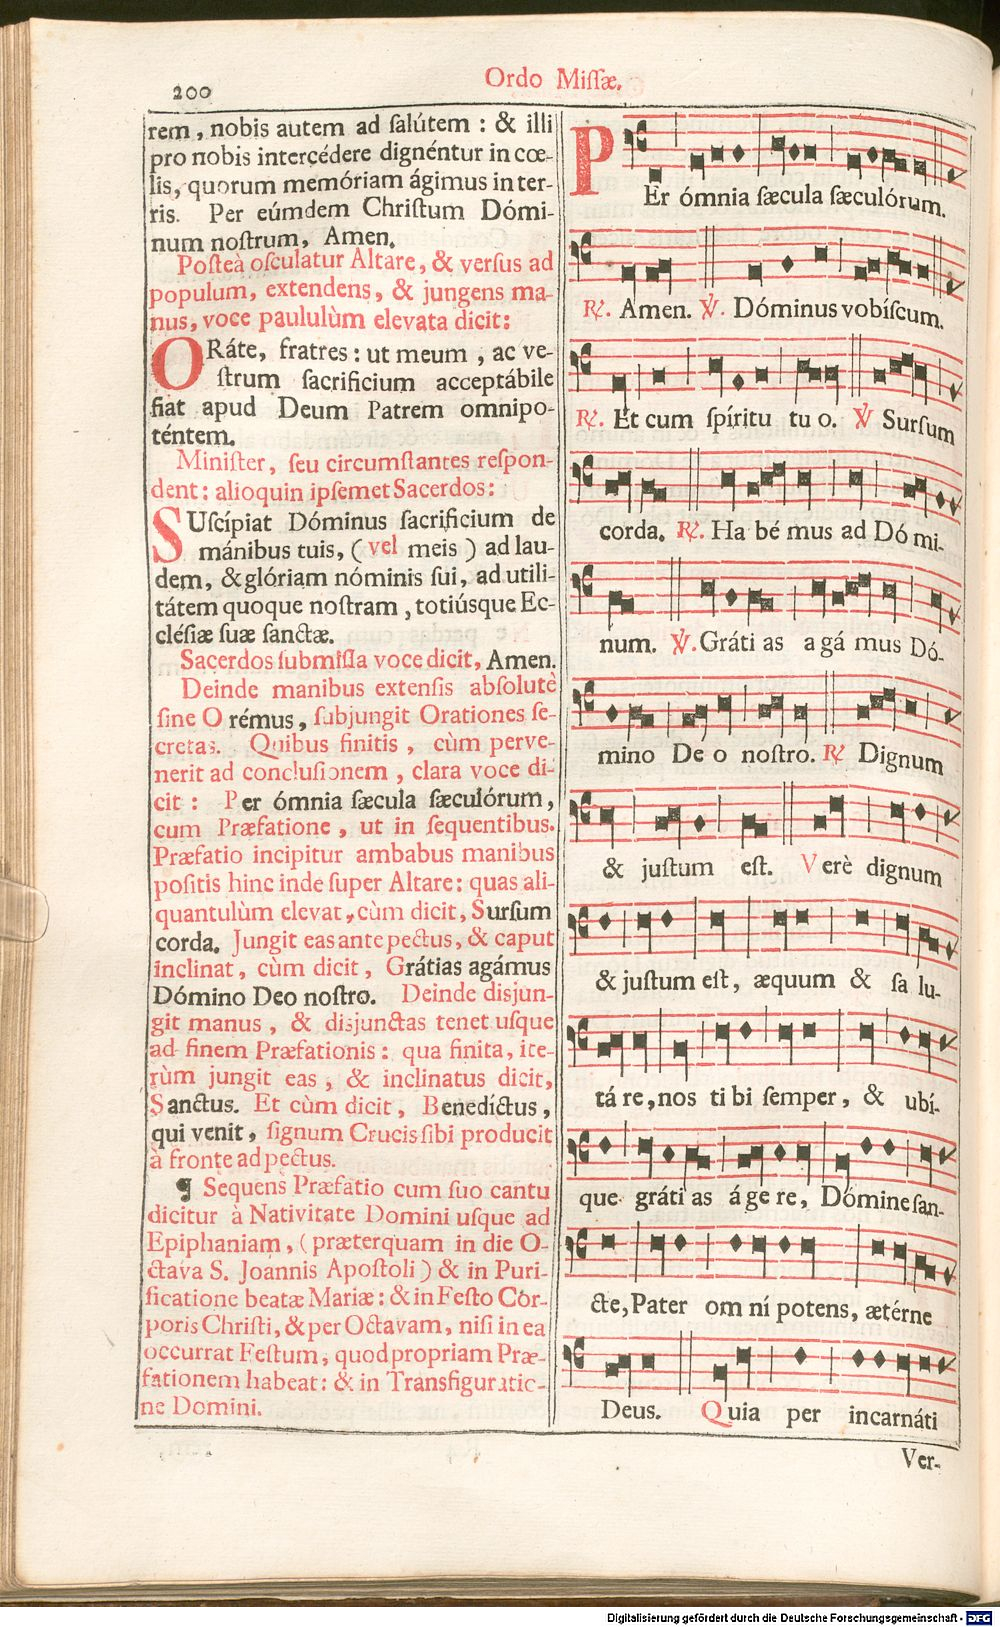 200
Ordo Miſſæ.
rem, nobis autem ad ſalútem : & illi
pro nobis intercédere dignéntur in cœ-
lis, quorum memóriam ágimus in ter-
ris. Per eúmdem Chriſtum Dómi-
num noſtrum, Amen.
Poſteà oſculatur Altare, & verſus ad
populum, extendens, & jungens ma-
nus, voce paululùm elevata dicit:
ORáte, fratres : ut meum , ac ve-
ſtrum ſacrificium acceptábile
fiat apud Deum Patrem omnipo-
téntem.
Miniſter, ſeu circumſtantes reſpon-
dent: alioquin ipſemet Sacerdos:
SUſcípiat Dóminus ſacrificium de
mánibus tuis, (vel meis) ad lau-
dem, & glóriam nóminis ſui, ad utili-
tátem quoque noſtram, totiúsque Ec-
cléſiæ ſuæ ſanctæ.
Sacerdos ſubmiſſa voce dicit, Amen.
Deinde manibus extenſis abſolutè
ſine O rémus, ſubjungit Orationes ſe-
cretas. Quibus finitis, cùm perve-
nerit ad concluſionem, clara voce di-
cit : Per ómnia ſæcula ſæculórum,
cum Præfatione, ut in ſequentibus.
Præfatio incipitur ambabus manibus
poſitis hinc inde ſuper Altare: quas ali-
quantulùm elevat, cùm dicit, Surſum
corda. Jungit eas ante pectus, & caput
inclinat, cùm dicit, Grátias agámus
Dómino Deo noſtro. Deinde disjun-
git manus, & disjunctas tenet uſque
ad finem Præfationis: qua finita, ite-
rùm jungit eas, & inclinatus dicit,
Sanctus. Et cùm dicit, Benedíctus,
qui venit, ſignum Crucis ſibi producit
à fronte ad pectus.
¶ Sequens Præfatio cum ſuo cantu
dicitur à Nativitate Domini uſque ad
Epiphaniam, (præterquam in die O-
ctava S. Joannis Apoſtoli) & in Puri-
ficatione beatæ Mariæ: & in Feſto Cor-
poris Chriſti, & per Octavam, niſi in ea
occurrat Feſtum, quod propriam Præ-
fationem habeat: & in Transfiguratio-
ne Domini.
PEr ómnia ſæcula ſæculórum.
℟. Amen. ℣. Dóminus vobíſcum.
℟. Et cum ſpíritu tu o. ℣ Surſum
corda. ℟. Ha bé mus ad Dó mi-
num. ℣. Gráti as a gá mus Dó-
mino De o noſtro. ℟ Dignum
& juſtum eſt. Verè dignum
& juſtum eſt, æquum & ſa lu-
tá re, nos ti bi ſemper, & ubí-
que gráti as á ge re, Dómine ſan-
cte, Pater om ní potens, ætérne
Deus. Quia per incarnáti
Ver-
Digitalisierung gefördert durch die Deutsche Forschungsgemeinschaft - DFG